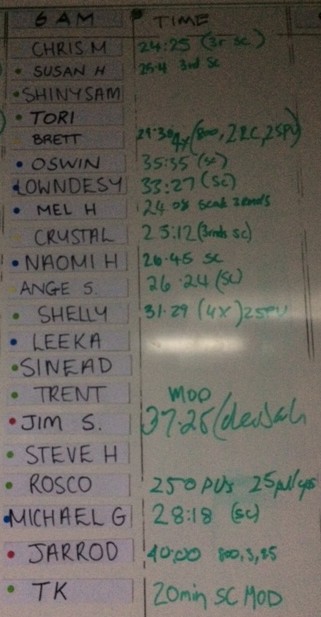 6 AM TIME
CHRIS M 24:25 (3r sc)
SUSAN H 25:4 3rd Sc
SHINYSAM
TORI
BRETT
OSWIN 35:35 (sc)
LOWNDESY 33:27 (SC)
MEL H 24
CRYSTAL 25:12 (3rnds sc)
NAOMI H 26:45 SC
ANGE S. 26:24 (SC)
SHELLY 31:29 (4X) 25PU
LEEKA
SINEAD
TRENT MOD
JIM S. 37:26
STEVE H
ROSCO 250 PUs 25 pullups
MICHAEL G 28:18 (SC)
JARROD 40:00 800,3,25
TK 20min SC MOD